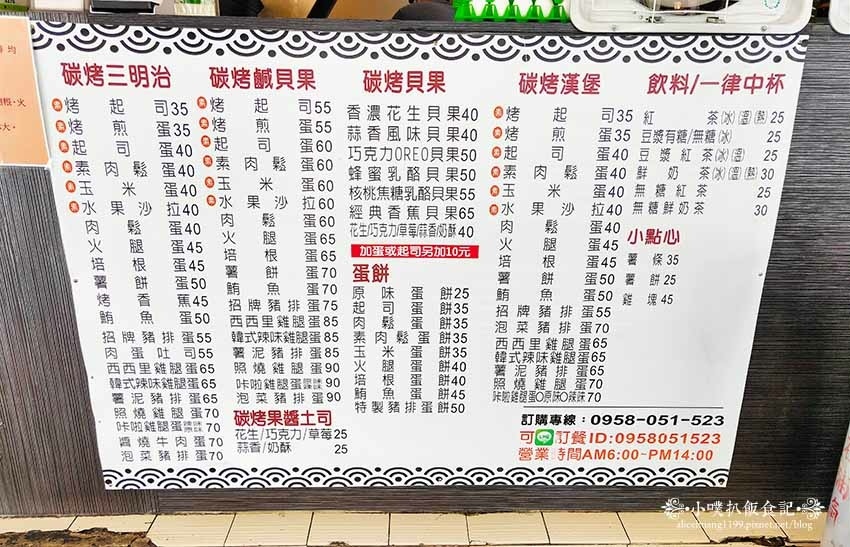 碳烤三明治
素 烤起司35
素 烤煎蛋35
素 起司蛋40
素 素肉鬆蛋40
素 玉米蛋40
素 水果沙拉40
肉鬆蛋40
火腿蛋45
培根蛋45
薯餅蛋50
烤香蕉45
鮪魚蛋50
招牌豬排蛋55
肉蛋吐司55
西西里雞腿蛋65
韓式辣味雞腿蛋65
薯泥豬排蛋65
照燒雞腿蛋70
咔啦雞腿蛋辣味原味70
醬燒牛肉蛋70
泡菜豬排蛋70
碳烤鹹貝果
素 烤起司55
素 烤煎蛋55
素 起司蛋60
素 素肉鬆蛋60
素 玉米蛋60
素 水果沙拉60
肉鬆蛋60
火腿蛋65
培根蛋65
薯餅蛋70
鮪魚蛋70
招牌豬排蛋75
西西里雞腿蛋85
韓式辣味雞腿蛋85
薯泥豬排蛋85
照燒雞腿蛋90
咔啦雞腿蛋90
泡菜豬排蛋90
碳烤果醬土司
花生/巧克力/草莓25
蒜香/奶酥 25
碳烤貝果
香濃花生貝果40
蒜香風味貝果40
巧克力OREO貝果50
蜂蜜乳酪貝果50
核桃焦糖乳酪貝果55
經典香蕉貝果65
花生/巧克力/草莓/蒜香/奶酥40
加蛋或起司另加10元
蛋餅
原味蛋餅25
起司蛋餅35
肉鬆蛋餅35
素肉鬆蛋餅35
玉米蛋餅35
火腿蛋餅40
培根蛋餅40
鮪魚蛋餅45
特製豬排蛋餅50
碳烤漢堡
素 烤起司35
素 烤煎蛋35
素 起司蛋40
素 素肉鬆蛋40
素 玉米蛋40
素 水果沙拉40
肉鬆蛋40
火腿蛋45
培根蛋45
薯餅蛋50
鮪魚蛋50
招牌豬排蛋55
泡菜豬排蛋70
西西里雞腿蛋65
韓式辣味雞腿蛋65
薯泥豬排蛋65
照燒雞腿蛋70
咔啦雞腿蛋O原味O辣味70
飲料/一律中杯
紅茶(冰)(溫)(熱) 25
豆漿有糖/無糖(冰) 25
豆漿紅茶(冰)(溫) 25
鮮奶茶(冰)(溫)(熱) 30
無糖紅茶 25
無糖鮮奶茶 30
小點心
薯條35
薯餅25
雞塊45
訂購專線：0958-051-523
可LINE訂餐ID:0958051523
營業時間AM6:00~PM14:00
•小噗扒飯食記•
alicehuang1199.pixnet.net/blog